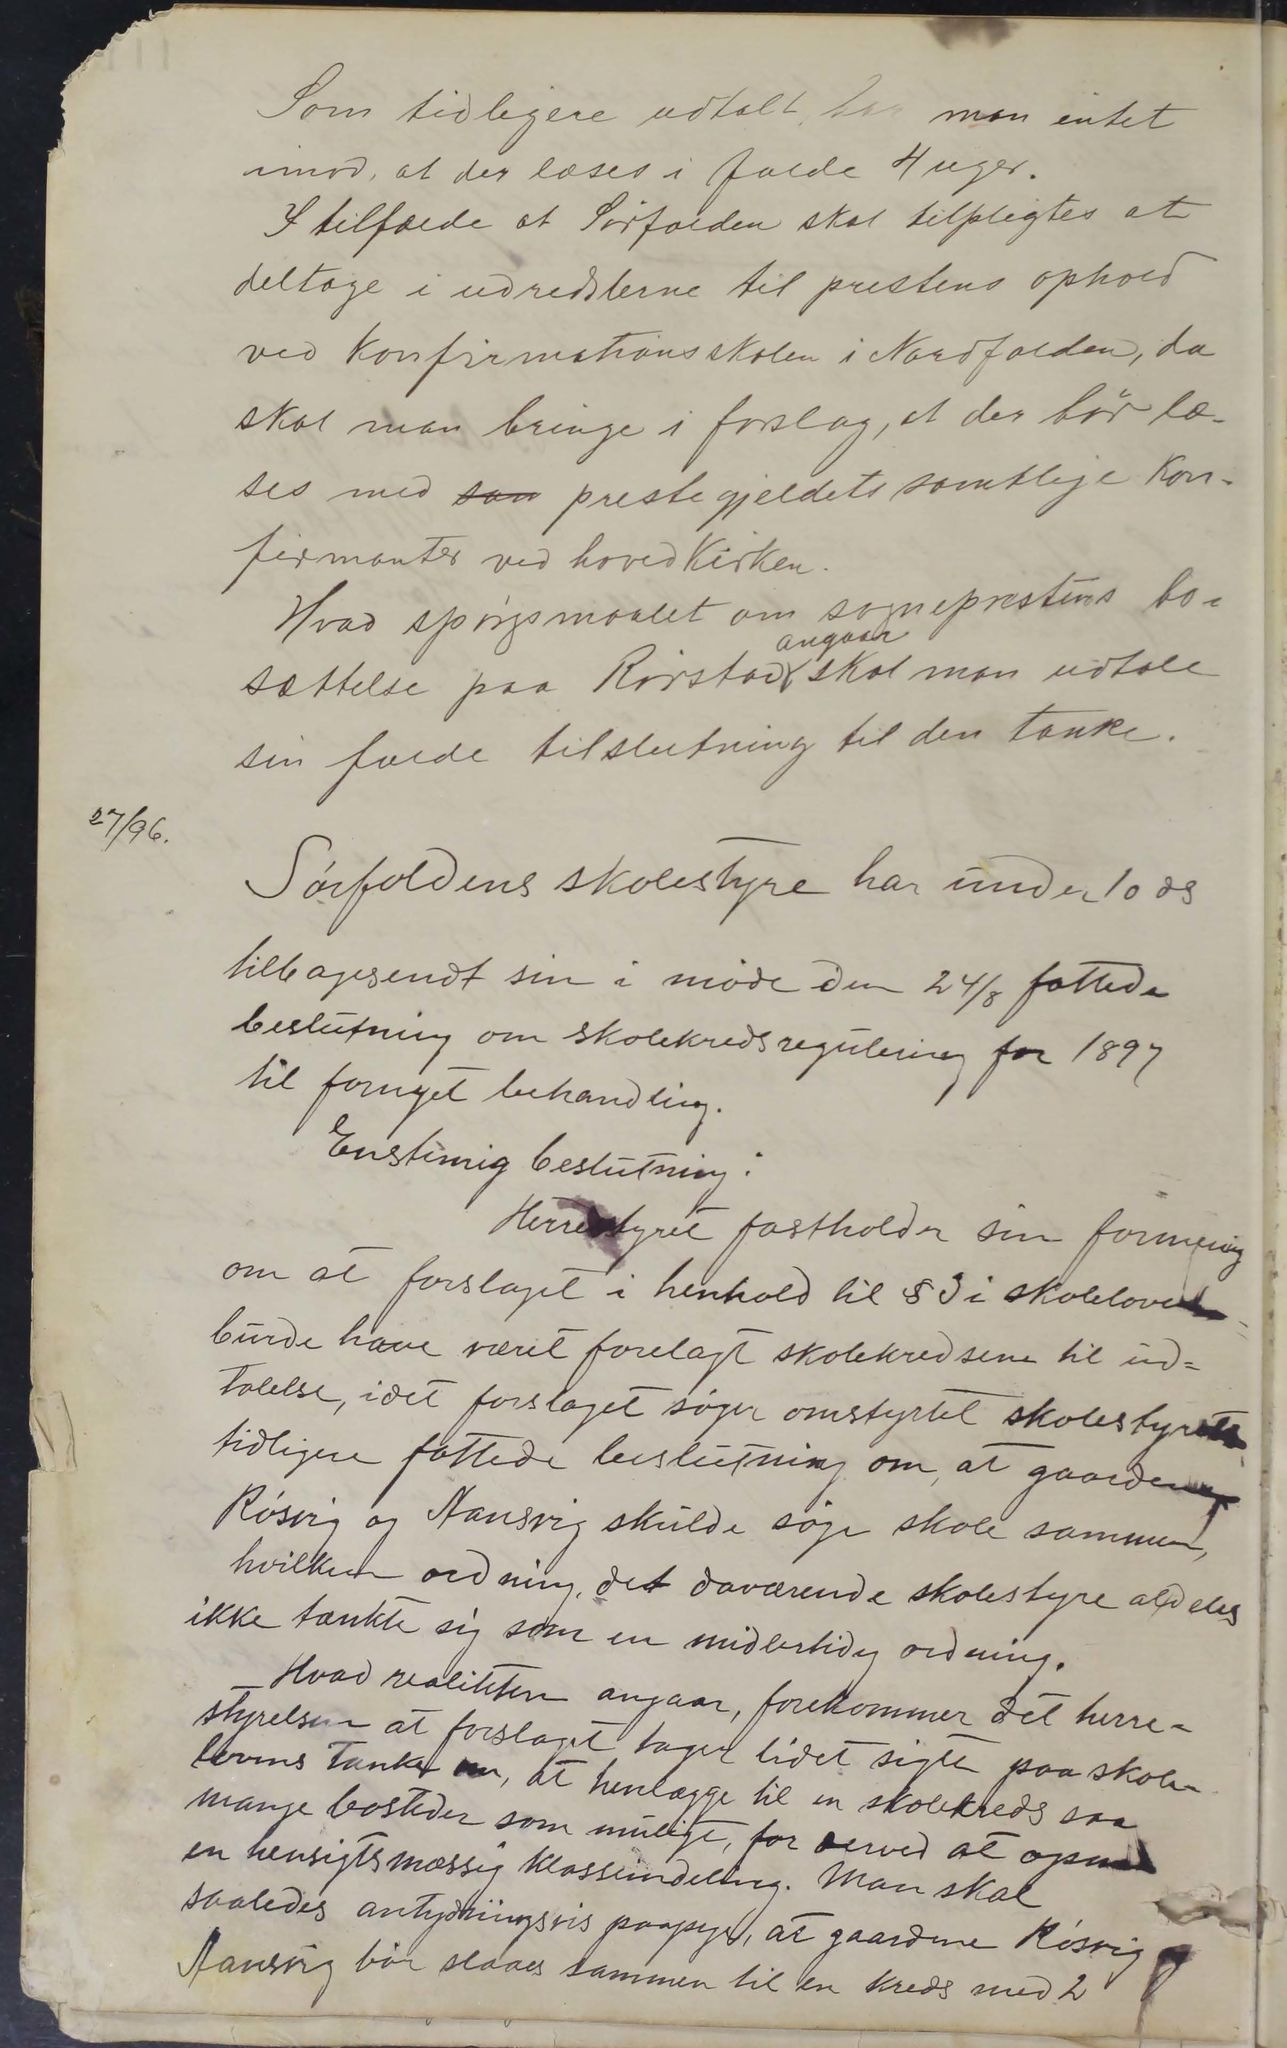 Som tidligere udtalt, har man intet
imod, at der læses i folde 4 uger.
I tilfælde at Sørfolden skal tilpligtes at
deltage i udredslerne til prestens ophold
ved Konfirmationsskolen i Nordfolden, da
skal man bringe i forslag, at der bør læ-
ses med san prestegjeldets samtlige Kon-
firmanter ved hovedKirken.
Hvad spørgsmaalet om sogneprestens bo-
angaar
sættelse paa Rørstad skal man udtale
sin fulde tilslutning til den tanke.
27/96.
Sørfoldens skolestyre har under 10 ds
tilbagesendt sin i møde den 24/8 fattede
beslutning om skolekredsregulering for 1897
til fornyet behandling.
Enstemig beslutning:
Herredstyret fastholder sin formening
om at forslaget i henhold til § 3 i skoleloven
burde have været forelagt skolekredsene til ud=
talelse, idet forslaget søger omstyrtet skolestyrets
tidligere fattede beslutning om, at gaardene
Røsvig og Aansvig skulde søge skole sammen,
hvilken ordning, det daværende skolestyre aldeles
ikke tænkte sig som en midlertidig ordning.
Hvad realiteten angaar, forekommer det herre-
styrelsen at forslaget tager lidet sigte paa skole-
lovens tanke om, at henlægge til en skolekreds saa
mange bosteder som muligt, for derved at opnaa
en hensigtsmæssig klasseindeling. Man skal
saaledes antydningsvis paapege, at gaardene Røsvig og
Aansvig bør slaaes sammen til en kreds med 2